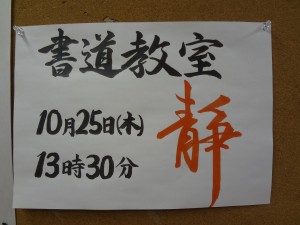 書道教室
10月25日(木)
13時30分
静